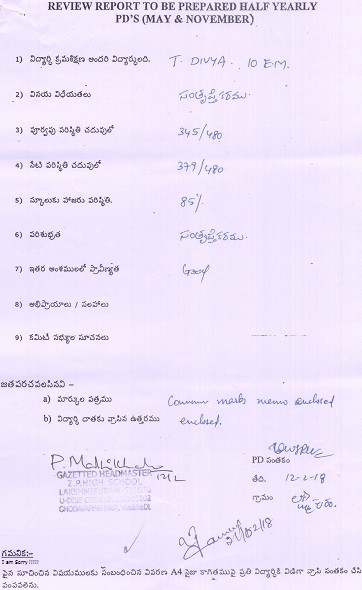 REVIEW REPORT TO BE PREPARED HALF YEARLY
PD'S (MAY & NOVEMBER)
1) విద్యార్థి క్రమశిక్షణ అందరి విద్యార్థులది. T. DIVYA. 10 E.M.
2) వినయ విధేయతలు
3) పూర్వపు పరిస్థితి చదువులో 345/480
4) నేటి పరిస్థితి చదువులో 379/480
5) స్కూలుకు హాజరు పరిస్థితి. 85%
6) పరిశుభ్రత
7) ఇతర అంశములలో ప్రావీణ్యత Good
8) అభిప్రాయాలు / సలహాలు
9) కమిటీ సభ్యుల సూచనలు
జతపరచవలసినవి -
a) మార్కుల పత్రము Common marks memo enclosed
b) విద్యార్థి దాతకు వ్రాసిన ఉత్తరము enclosed.
PD సంతకం
GAZETTED HEADMASTER
Z.P. HIGH SCHOOL
తేది. 12-2-18
గ్రామం
21/02/18
గమనిక:-
I am Sorry !!!!!
పైన సూచించిన విషయములకు సంబంధించిన వివరణ A4 సైజు కాగితముపై ప్రతి విద్యార్థికి విడిగా వ్రాసి సంతకం చేసి
పంపవలెను.